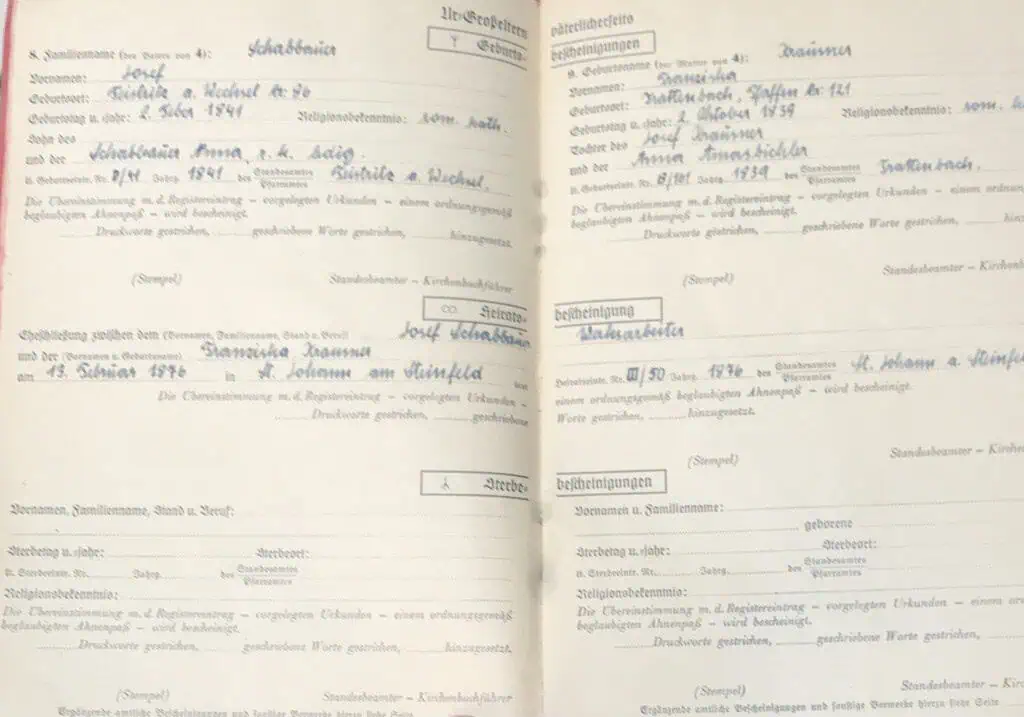 Ur-Großeltern
Geburts-
8. Familienname (des Vaters von 4): Schabbauer
Vornamen: Josef
Geburtsort: Feistritz a. Wechsel Nr: 86
Geburtstag u. -jahr: 2. Feber 1841 Religionsbekenntnis: röm. kath.
Sohn des
und der Schabbauer Anna, r. k. ledig.
lt. Geburtseintr. Nr. 1841 Jahrg. 1841 des Standesamtes Pfarramtes Feistritz a. Wechsel.
Die Übereinstimmung m. d. Registereintrag – vorgelegten Urkunden – einem ordnungsgemäß
beglaubigten Ahnenpaß – wird bescheinigt.
Druckworte gestrichen, geschriebene Worte gestrichen, hinzugesetzt.
(Stempel) Standesbeamter – Kirchenbuchführer
Heirats-
Eheschließung zwischen dem (Vornamen, Familienname, Stand u. Beruf) Josef Schabbauer
und der (Vornamen u. Geburtsname) Franziska Krausner
am 13. Februar 1876 in St. Johann am Steinfeld
Die Übereinstimmung m. d. Registereintrag – vorgelegten Urkunden –
Druckworte gestrichen, geschriebene
Sterbe-
Vornamen, Familienname, Stand u. Beruf:
Sterbetag u. -jahr: Sterbeort:
lt. Sterbeeintr. Nr. Jahrg. des Standesamtes Pfarramtes
Religionsbekenntnis:
Die Übereinstimmung m. d. Registereintrag – vorgelegten Urkunden – einem ordnungsgemäß
beglaubigten Ahnenpaß – wird bescheinigt.
Druckworte gestrichen, geschriebene Worte gestrichen, hinzugesetzt.
(Stempel) Standesbeamter – Kirchenbuchführer
Ergänzende amtliche Bescheinigungen und sonstige Vermerke hierzu siehe Seite
väterlicherseits
bescheinigungen
9. Geburtsname (der Mutter von 4): Krausner
Vornamen: Franziska
Geburtsort: Trattenbach, Pfaffen Nr: 121
Geburtstag u. -jahr: 2. Oktober 1839 Religionsbekenntnis: röm. k
Tochter des Josef Krausner
und der Anna Amasbichler
lt. Geburtseintr. Nr. 8/101 Jahrg. 1839 des Standesamtes Pfarramtes Trattenbach.
Die Übereinstimmung m. d. Registereintrag – vorgelegten Urkunden – einem ordnungs
beglaubigten Ahnenpaß – wird bescheinigt.
Druckworte gestrichen, geschriebene Worte gestrichen, hinzu
(Stempel) Standesbeamter – Kirchen
bescheinigung
lt. Heiratseintr. Nr. III/50 Jahrg. 1876 des Standesamtes Pfarramtes St. Johann a. Steinfe
einem ordnungsgemäß beglaubigten Ahnenpaß – wird bescheinigt.
Worte gestrichen, hinzugesetzt.
(Stempel) Standesbeamter – Kirchen
bescheinigungen
Vornamen u. Familienname:
geborene
Sterbetag u. -jahr: Sterbeort:
lt. Sterbeeintr. Nr. Jahrg. des Standesamtes Pfarramtes
Religionsbekenntnis:
Die Übereinstimmung m. d. Registereintrag – vorgelegten Urkunden – einem or
beglaubigten Ahnenpaß – wird bescheinigt.
Druckworte gestrichen, geschriebene Worte gestrichen,
(Stempel) Standesbeamter – Kirchen
Ergänzende amtliche Bescheinigungen und sonstige Vermerke hierzu siehe Seite